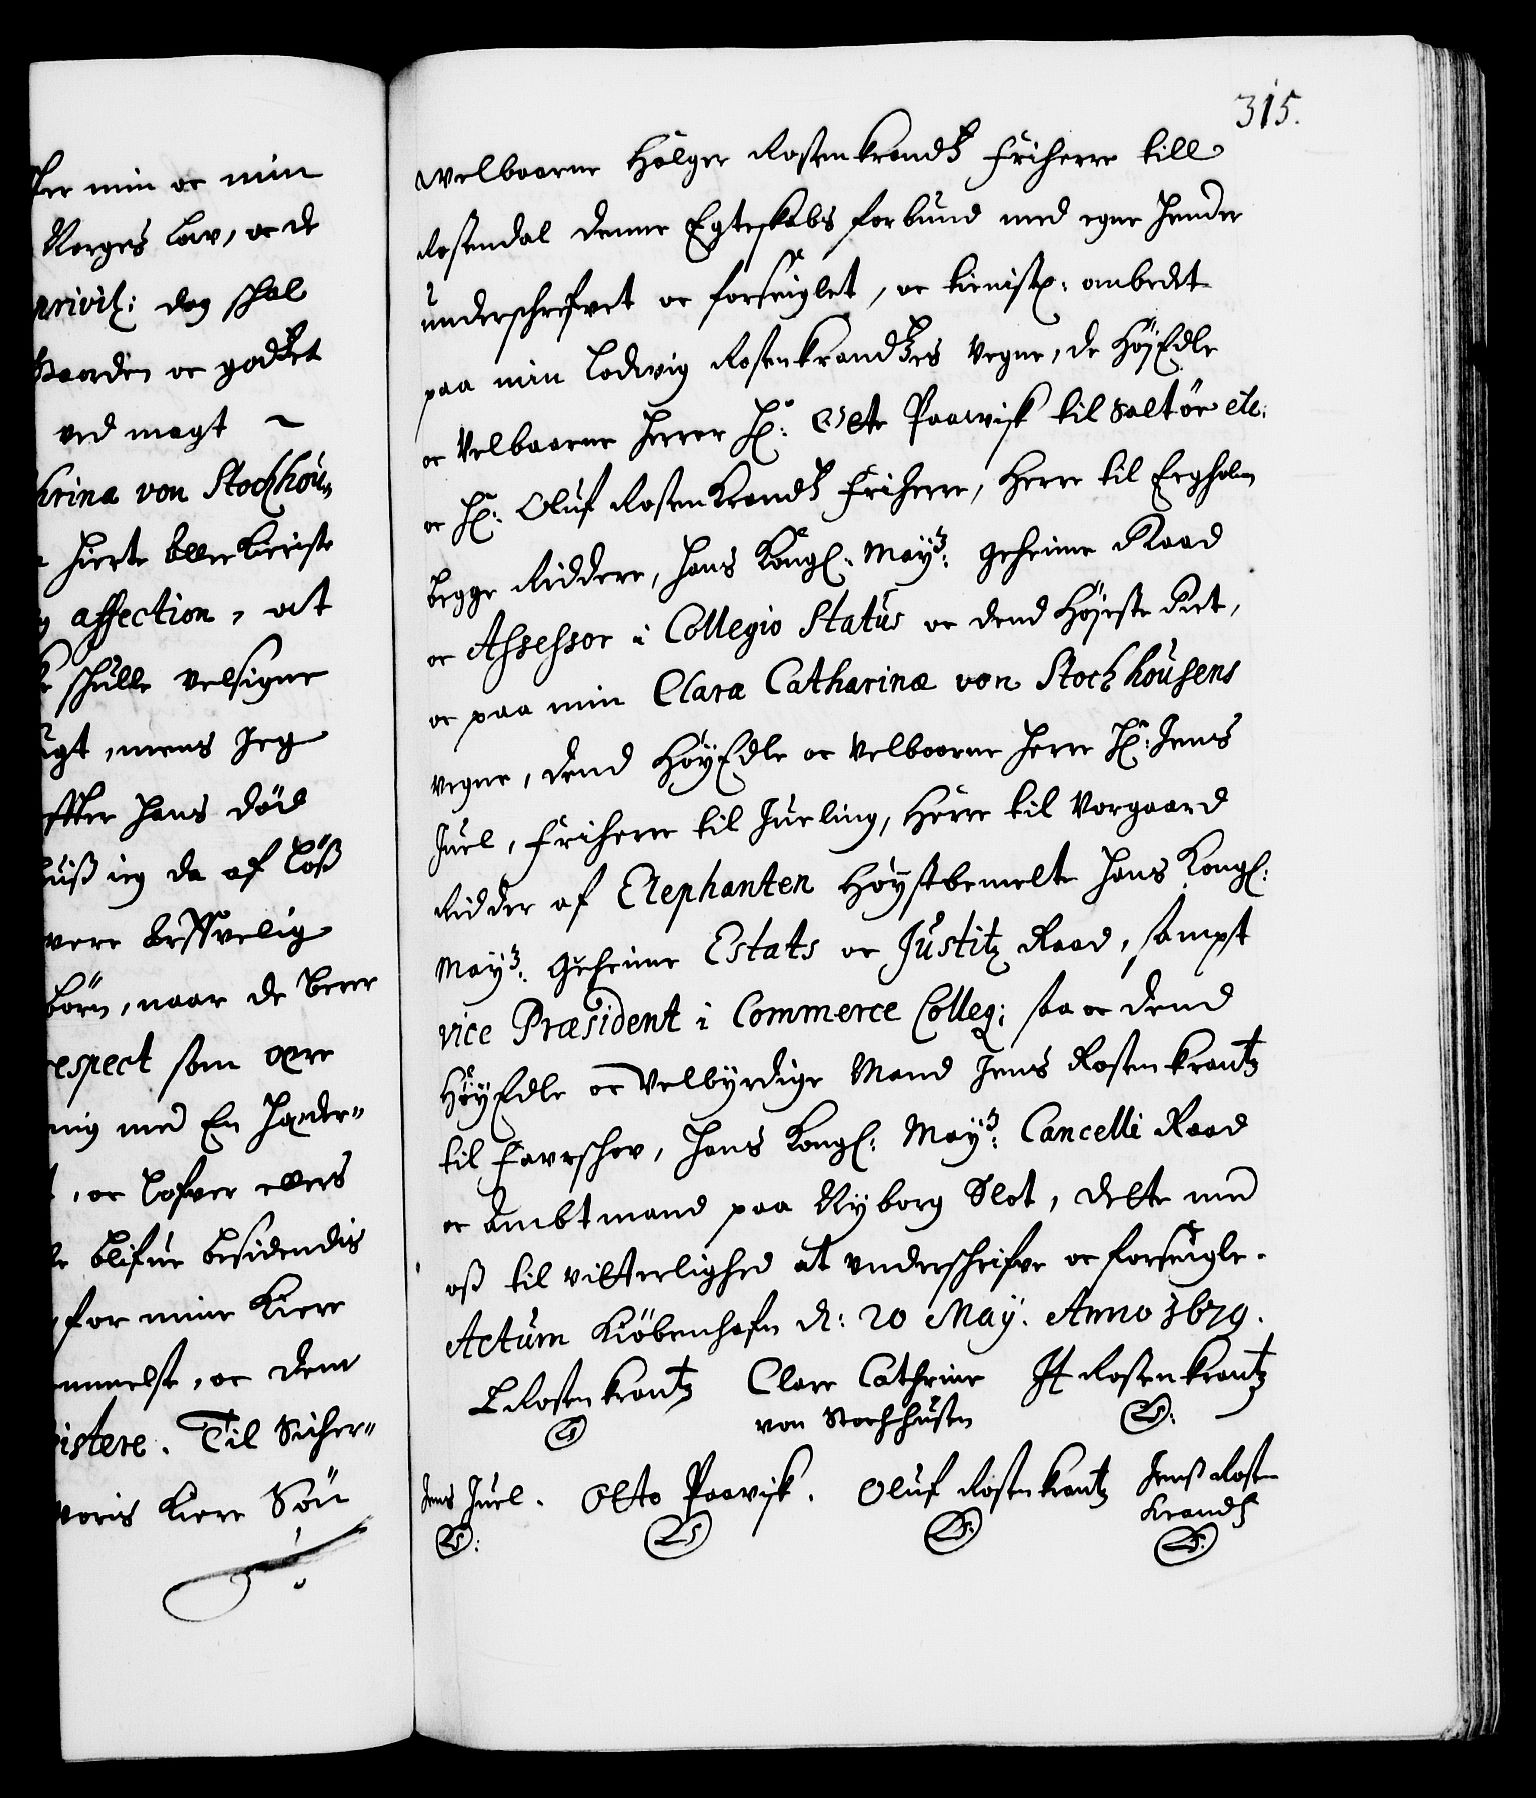 315.
ter min oc min
Norges low, oc de
privil: dog schal
Gaarden oc godtzet
ved magt ~
hrina von Stochhou-
hierte allerkieriste
affection, at
schulle velsigne
mens Jeg
efter hans död
huiß ieg da af löß
være
börn, naar de
espect som
mig med En hæder-
, oc lofver ellers
blifue besidendis
for min kiere
ommelse, oc dem
istere. Til Sicher-
voris kiere Sön
welbaarne Holger Rosenkrandtz friherre till
Rosendal denne Egteskabs forbund med egne hender
underschrefvet oc forseiglet, oc tienistl: anbedet
paa min Lodvig Rosenkrandtzes vegne, de HöyEdle
oc Velbaarne herrer Hr: Otte Paawisk til Saltöe etc:
oc Hr: Oluf Rosenkrandtz friherre, Herre til Eegholm
begge Riddere, hans Kongl: Mayts: geheime Raad
oc Assessor i Collegio Status oc dend Höyeste Ret,
oc paa min Clara Catharina von Stochhousens
vegne, dend HöyEdle oc Velbaarne herre Hr: Jens
Juel, friherre til Jueling, Herre til Vorgaard
Ridder af Elephanten Höystbemelte hans Kongl:
Mayts: geheime Estats oc Justitz Raad, sampt
vice Præsident i Commerce Colleg; saa oc dend
HöyEdle oc Velbyrdige Mand Jens Rosenkrantz
til Favrschov, hans Kongl: Mayts: Cancelli Raad
oc Ambtmand paa Nyborg Slot, dette med
oß til vitterlighed at underschrifve oc forseigle.
Actum Kiöbenhafn d: 20 May. Anno 1679.
LRosenkrantz Clare Cathrine H Rosenkrantz
von Stochhusen
Jens Juel. Otto Paavisk. Oluf Rosenkrantz Jenß Rosen
krandtz